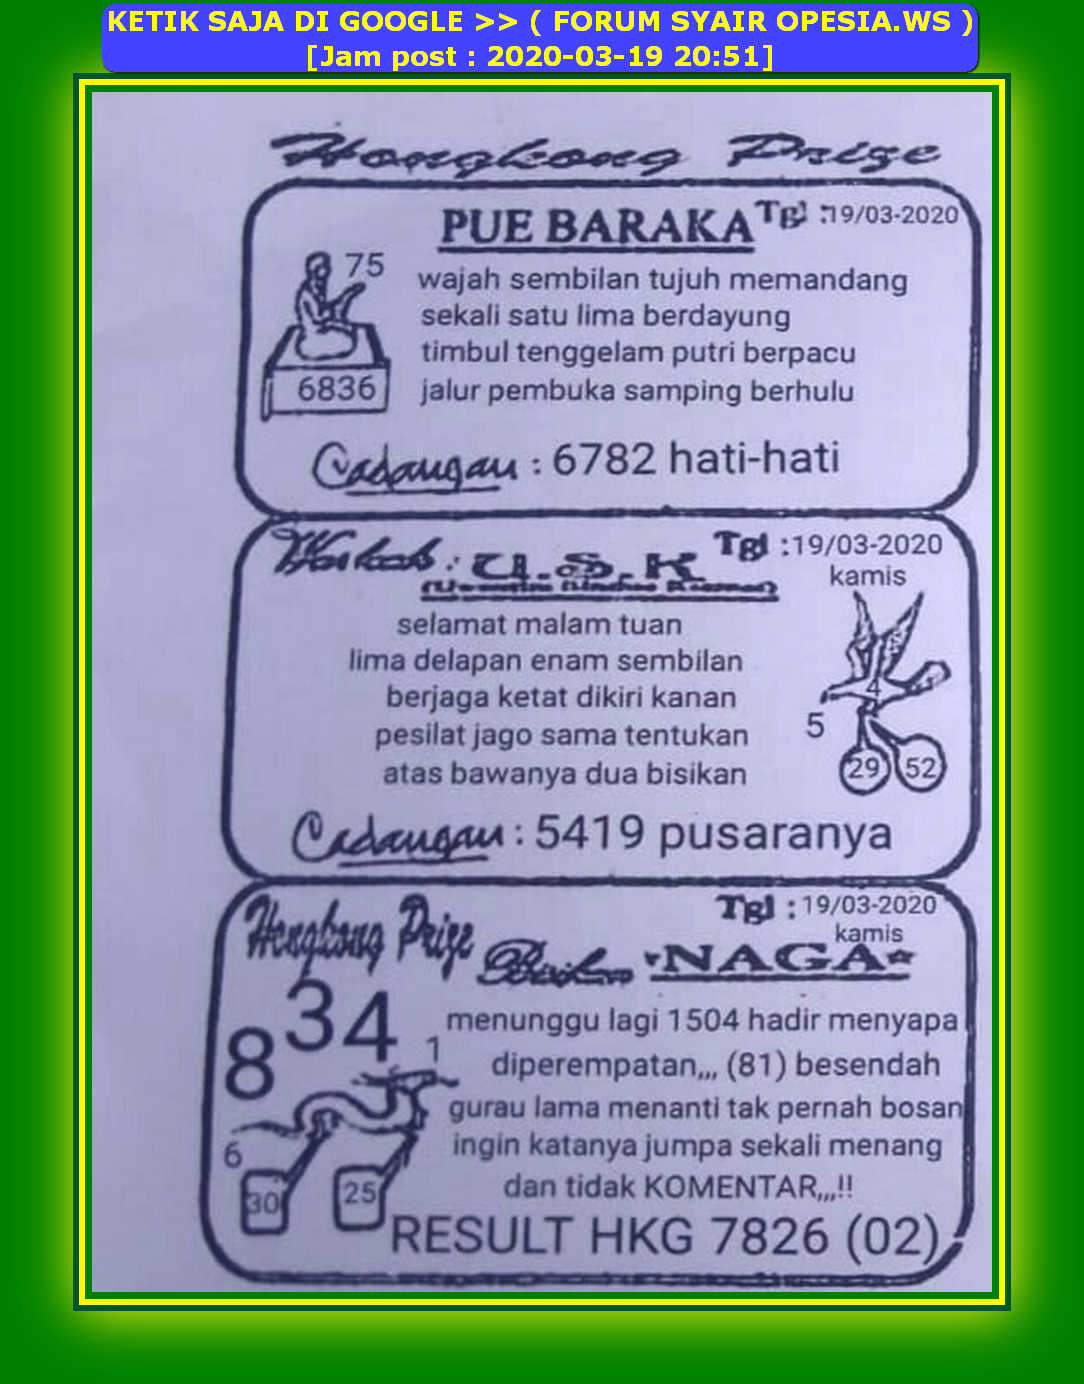 KETIK SAJA DI GOOGLE >> ( FORUM SYAIR OPESIA.WS )
[Jam post : 2020-03-19 20:51]
Hongkong Prize
PUE BARAKA Tgl :19/03-2020
75
wajah sembilan tujuh memandang
sekali satu lima berdayung
timbul tenggelam putri berpacu
6836
jalur pembuka samping berhulu
Cadangan : 6782 hati-hati
U.S.K Tgl :19/03-2020
kamis
selamat malam tuan
lima delapan enam sembilan
berjaga ketat dikiri kanan
pesilat jago sama tentukan
atas bawanya dua bisikan
4
5
29 52
Cadangan : 5419 pusaranya
Hongkong Prize
Tgl : 19/03-2020
kamis
NAGA
8 34 1
menunggu lagi 1504 hadir menyapa
diperempatan,,, (81) besendah
gurau lama menanti tak pernah bosan
ingin katanya jumpa sekali menang
dan tidak KOMENTAR,,,!!
6
30 25
RESULT HKG 7826 (02)